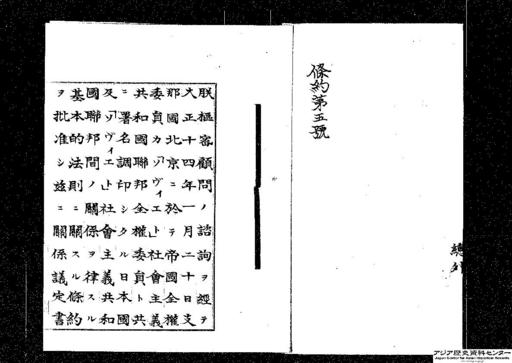 條約第五號
朕樞密顧問ノ諮詢ヲ經テ
大正十四年一月二十日支
那國北京ニ於テ帝國全權
委員カ「ソヴィエト」社會主義
共和國聯邦全權委員ト共
ニ署名調印シタル日本國
及「ソヴィエト」社會主義共和
國聯邦間ノ關係ヲ律スル
基本的法則ニ關スル條約
ヲ批准シ茲ニ關係議定書
アジア歴史資料センター
Japan Center for Asian Historical Records